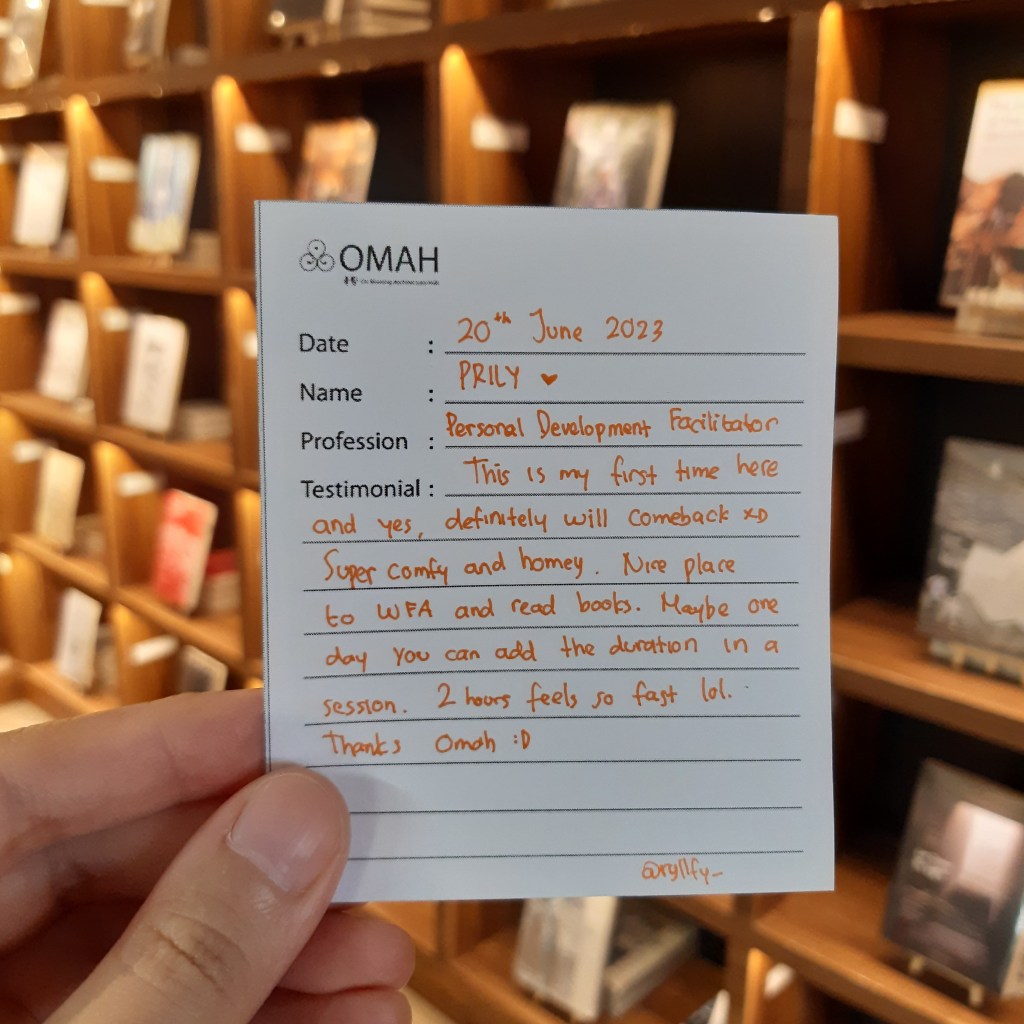 OMAH
Date : 20th June 2023
Name : PRILY ♥
Profession : Personal Development Facilitator
Testimonial : This is my first time here
and yes, definitely will comeback XD
Super comfy and homey. Nice place
to WFA and read books. Maybe one
day you can add the duration in a
session. 2 hours feels so fast lol.
Thanks Omah :D
@ryllfy_